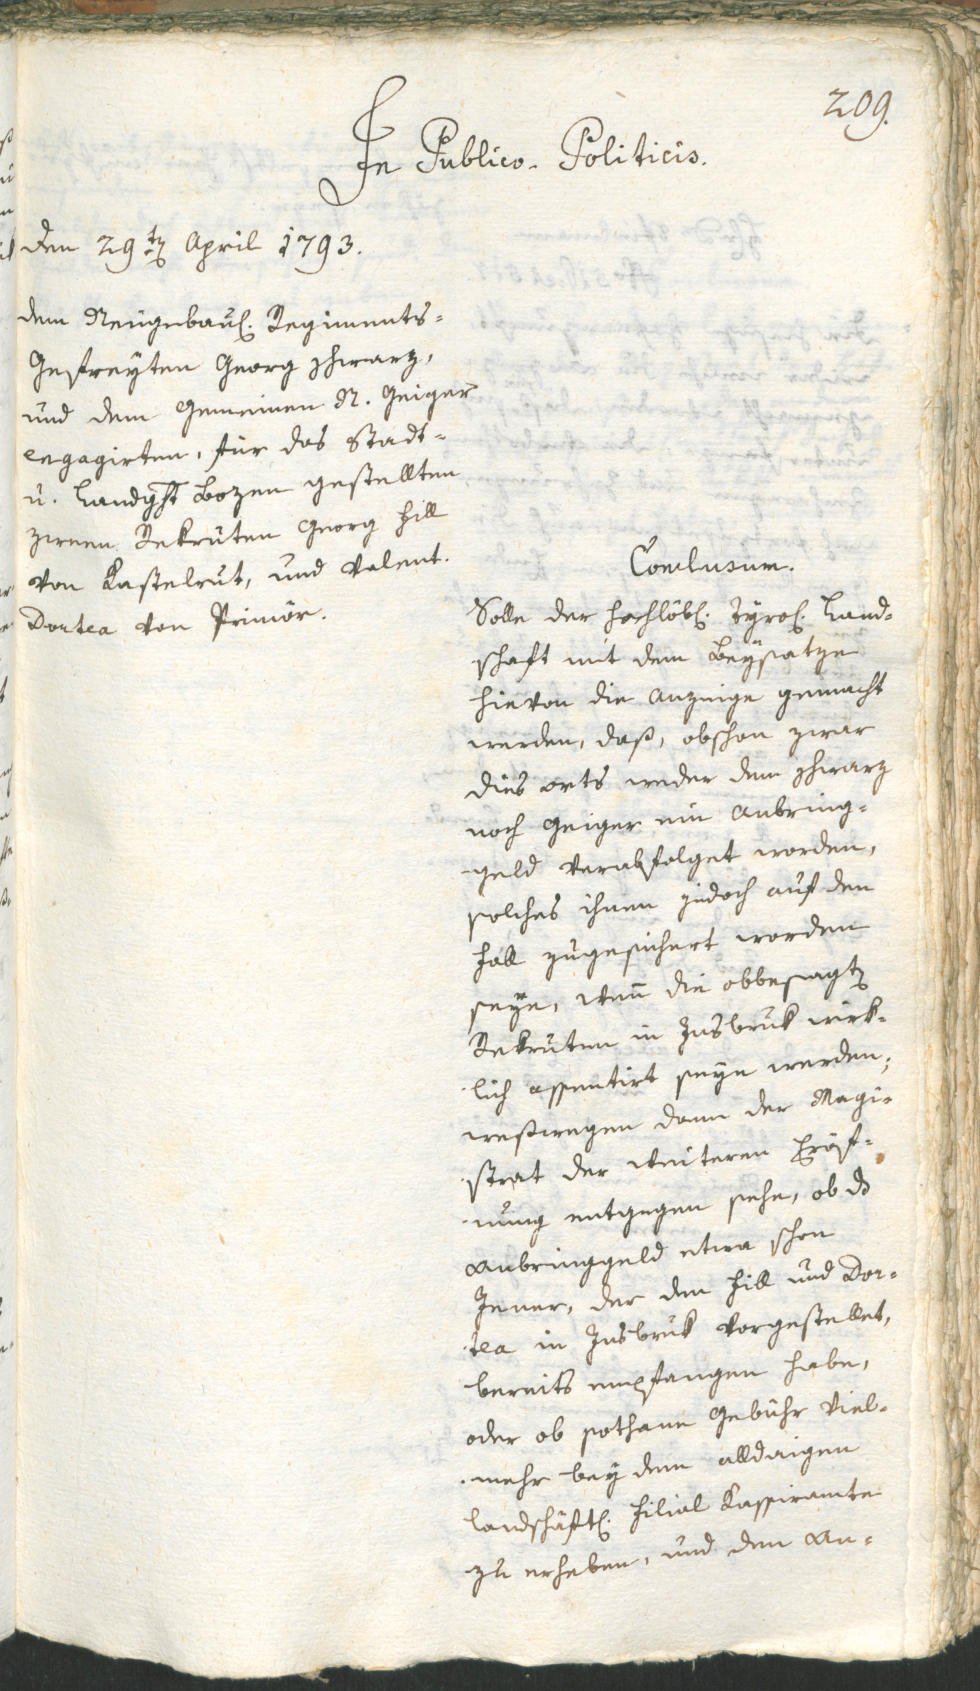 209.
In Publico-Politicis.
den 29ten April 1793.
dem Neugebaul. Regiments-
Gefreyten Georg Schwarz,
und dem Gemeinen N. Geiger
engagirten, für das Stadt-
u. Landgst Bozen gestellten
zween Rekruten Georg Hill
von Kastelrut, und Valent.
Dortea von Primör.
Conclusum.
Solle der hochlöbl. Tyrol. Land-
schaft mit dem Beysatze
hievon die Anzeige gemacht
werden, daß, obschon zwar
dies orts weder dem Schwarz
noch Geiger ein Anbring-
geld verabfolget worden,
solches ihnen jedoch auf den
Fall zugesichert worden
seye, wen̄ die obbesagten
Rekruten in Insbruk wirk-
lich assentirt seyn werden;
weßwegen dann der Magi-
strat der weiteren Eröf-
nung entgegen sehe, ob das
Anbringgeld etwa schon
Jener, der den Hill und Dor-
tea in Insbruk vorgestellet,
bereits empfangen habe,
oder ob sothane Gebühr viel-
mehr bey dem alldaigen
landschäftl. Filial Kassieramte
zu erheben, und dem An-